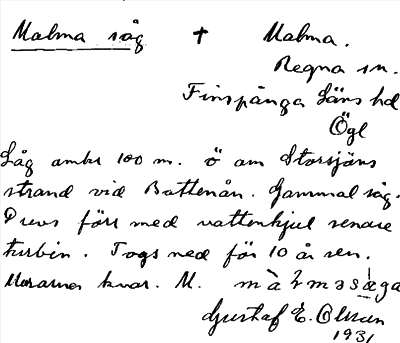 Malma såg + Malma.
Regna sn.
Finspånga Läns hd
Ögl
Låg omkr 100 m. ö om Storsjöns
strand vid Bottenån. Gammal såg.
Drevs förr med vattenhjul senare
turbin. Togs ned för 10 år sen.
Murarna kvar. M.
Gustaf E. Olsson
1931